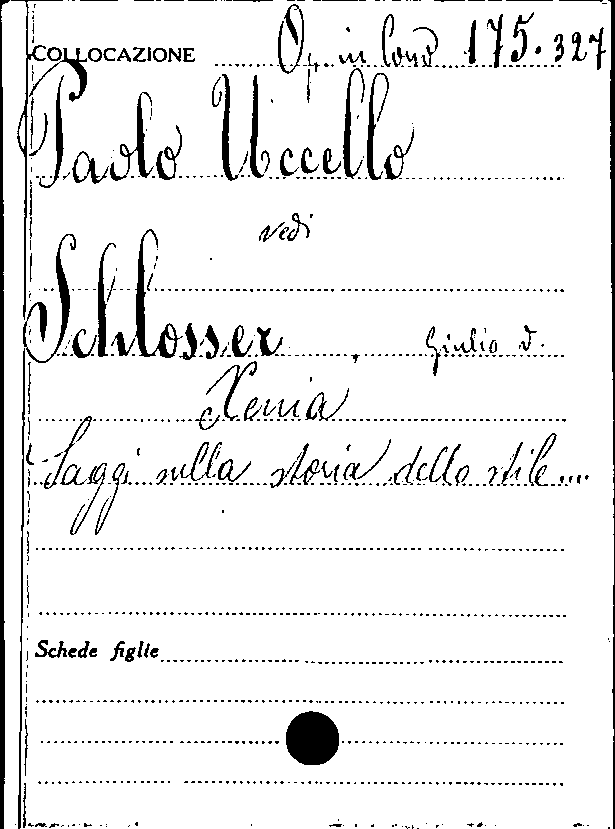 COLLOCAZIONE Op. in Cons 175.327
Paolo Uccello
vedi
Schlosser, Giulio v.
Xenia
Saggi sulla storia dello stile...
Schede figlie